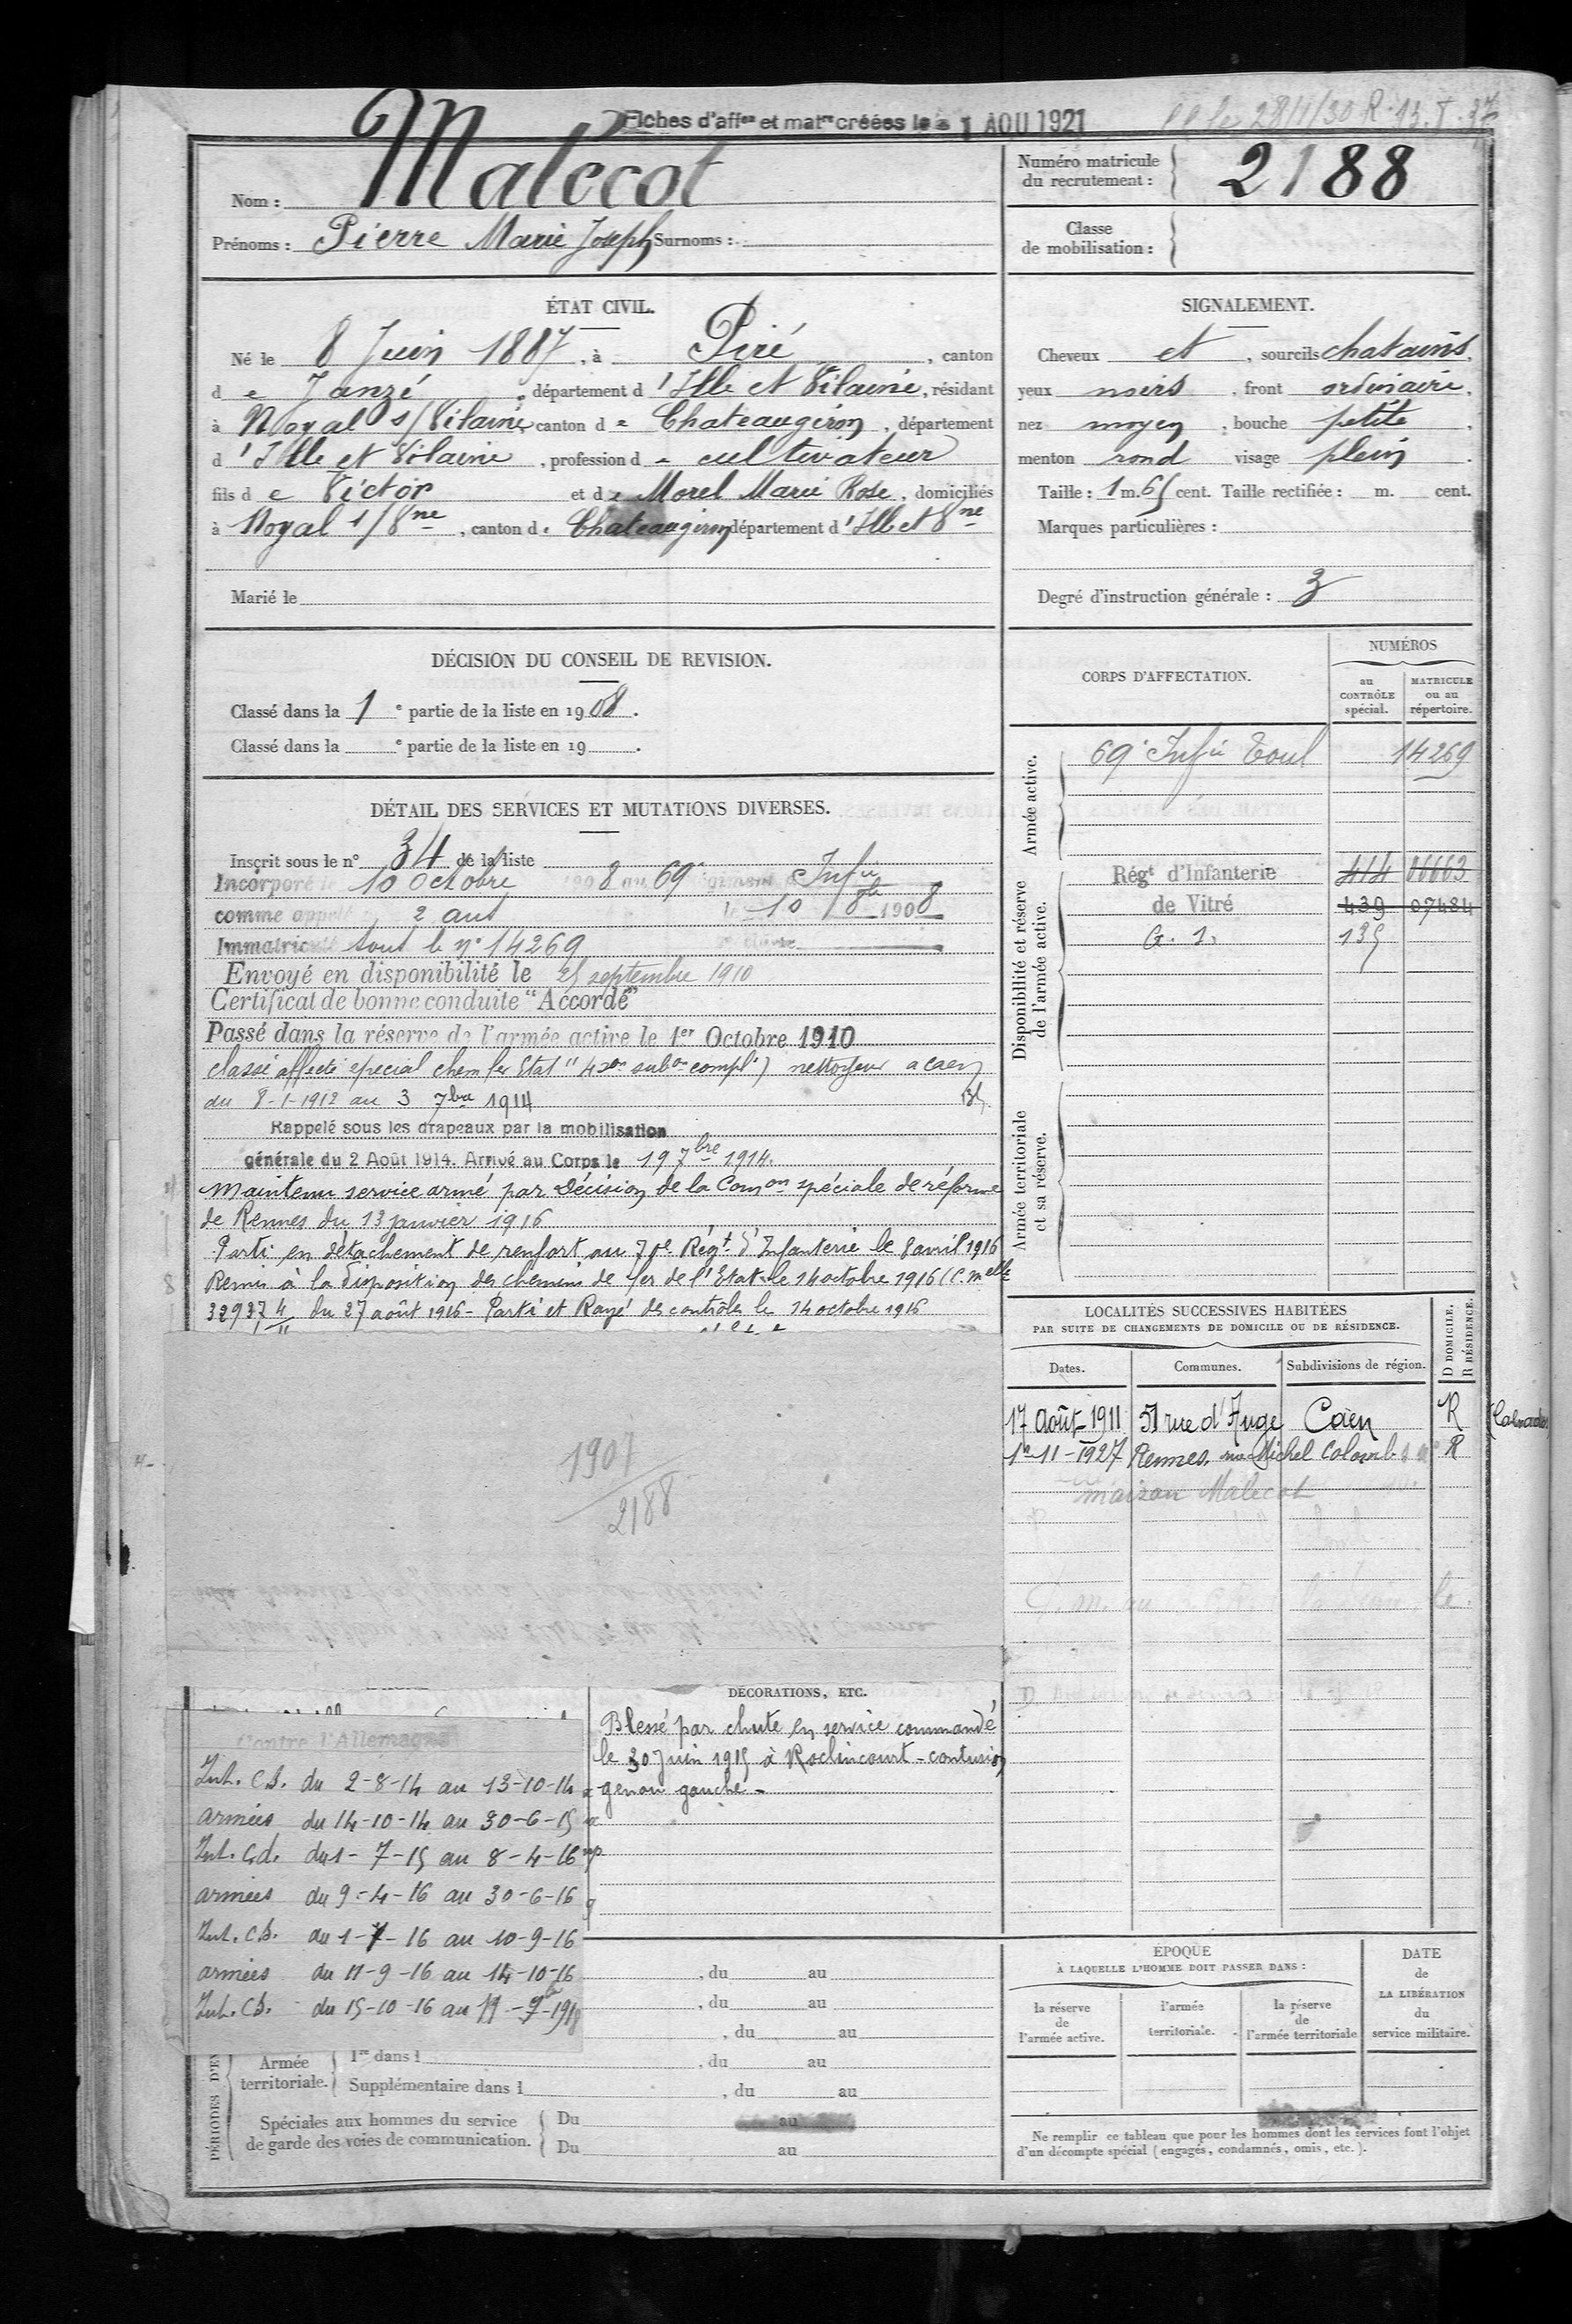 Fiches d'aff^on et mat^re créées le 1 AOU 1921
Nom : Malécot
Prénoms : Pierre Marie Joseph Surnoms :
Numéro matricule du recrutement : 2188
Classe de mobilisation :
ÉTAT CIVIL.
Né le 8 Juin 1887, à Piré, canton
d e Janzé, département d 'Ille et Vilaine, résidant
à Noyal s/Vilaine, canton d e Chateaugiron, département
d 'Ille et Vilaine, profession d e cultivateur
fils d e Victor et d e Morel Marie Rose, domiciliés
à Noyal s/Vne, canton d e Chateaugiron département d 'Ill et Vne
Marié le
SIGNALEMENT.
Cheveux et, sourcils chatains,
yeux noirs, front ordinaire,
nez moyen, bouche petite,
menton rond visage plein.
Taille : 1 m. 65 cent. Taille rectifiée : m. cent.
Marques particulières :
Degré d'instruction générale : 3
DÉCISION DU CONSEIL DE REVISION.
Classé dans la 1 e partie de la liste en 1908.
Classé dans la e partie de la liste en 19 .
DÉTAIL DES SERVICES ET MUTATIONS DIVERSES.
Inscrit sous le n° 34 de la liste
Incorporé le 10 Octobre 1908 au 69e Infie
comme appelé 2 ans le 10 8bre 1908
Immatriculé sous le n° 14269
Envoyé en disponibilité le 25 septembre 1910
Certificat de bonne conduite "Accordé"
Passé dans la réserve de l'armée active le 1er Octobre 1910
classé affecté special chem fer Etat (4 son subon compl.) nettoyeur a caen
du 8-1-1912 au 3 7bre 1914
Rappelé sous les drapeaux par la mobilisation
générale du 2 Août 1914. Arrivé au Corps le 19 7bre 1914.
Maintenu service armé par décision de la Comon spéciale de réforme
de Rennes du 13 janvier 1916
Parti en détachement de renfort au 70e Régt d'Infanterie le 8 avril 1916
Remis à la disposition des chemins de fer de l'Etat le 14 octobre 1916 (C. melle
32937 4/11 du 27 août 1916 - Parti et Rayé des contrôles le 14 octobre 1916
1907
2188
CORPS D'AFFECTATION.
NUMÉROS
au CONTRÔLE spécial.
MATRICULE ou au répertoire.
Armée active.
69e Infie Toul 14269
Disponibilité et réserve de l'armée active.
Régt d'Infanterie 414 06663
de Vitré 439 07484
G. 1. 135
Armée territoriale et sa réserve.
LOCALITÉS SUCCESSIVES HABITÉES
PAR SUITE DE CHANGEMENTS DE DOMICILE OU DE RÉSIDENCE.
Dates. Communes. Subdivisions de région. D DOMICILE. R RÉSIDENCE.
17 Août 1911 51 rue d'Auge Caen R (Calvados)
1e-11-1927 Rennes, rue Michel Colomb R
maison Malecot
Contre l'Allemagne
Int. C.S. du 2-8-14 au 13-10-14
armées du 14-10-14 au 30-6-15
Int. C.d. du 1-7-15 au 8-4-16
armées du 9-4-16 au 30-6-16
Int. C.S. du 1-7-16 au 10-9-16
armées du 11-9-16 au 14-10-16
Int. C.S. du 15-10-16 au
DÉCORATIONS, ETC.
Blessé par chute en service commandé
le 30 Juin 1915 à Roclincourt - contusion
genou gauche -
, du au
, du au
, du au
Armée territoriale. 1re dans l , du au
Supplémentaire dans l , du au
Spéciales aux hommes du service de garde des voies de communication.
Du au
Du au
ÉPOQUE
À LAQUELLE L'HOMME DOIT PASSER DANS :
la réserve de l'armée active.
l'armée territoriale.
la réserve de l'armée territoriale
DATE de LA LIBÉRATION du service militaire.
Ne remplir ce tableau que pour les hommes dont les services font l'objet
d'un décompte spécial (engagés, condamnés, omis, etc.).